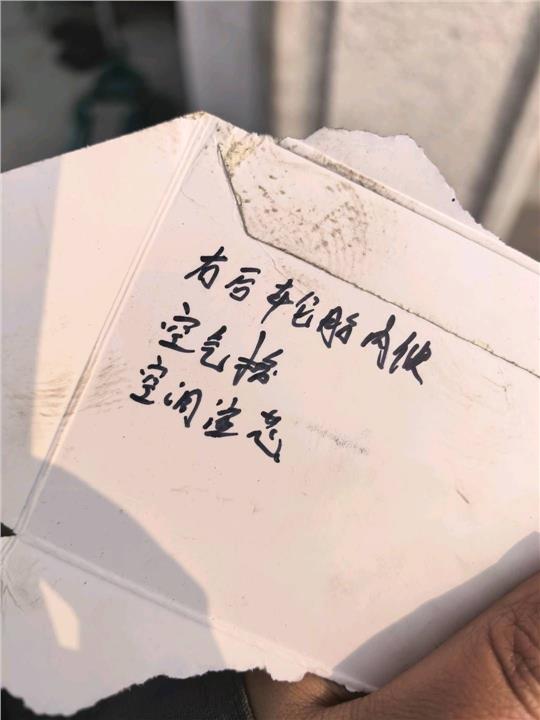 右后轮胎内侧
空气格
空调滤芯